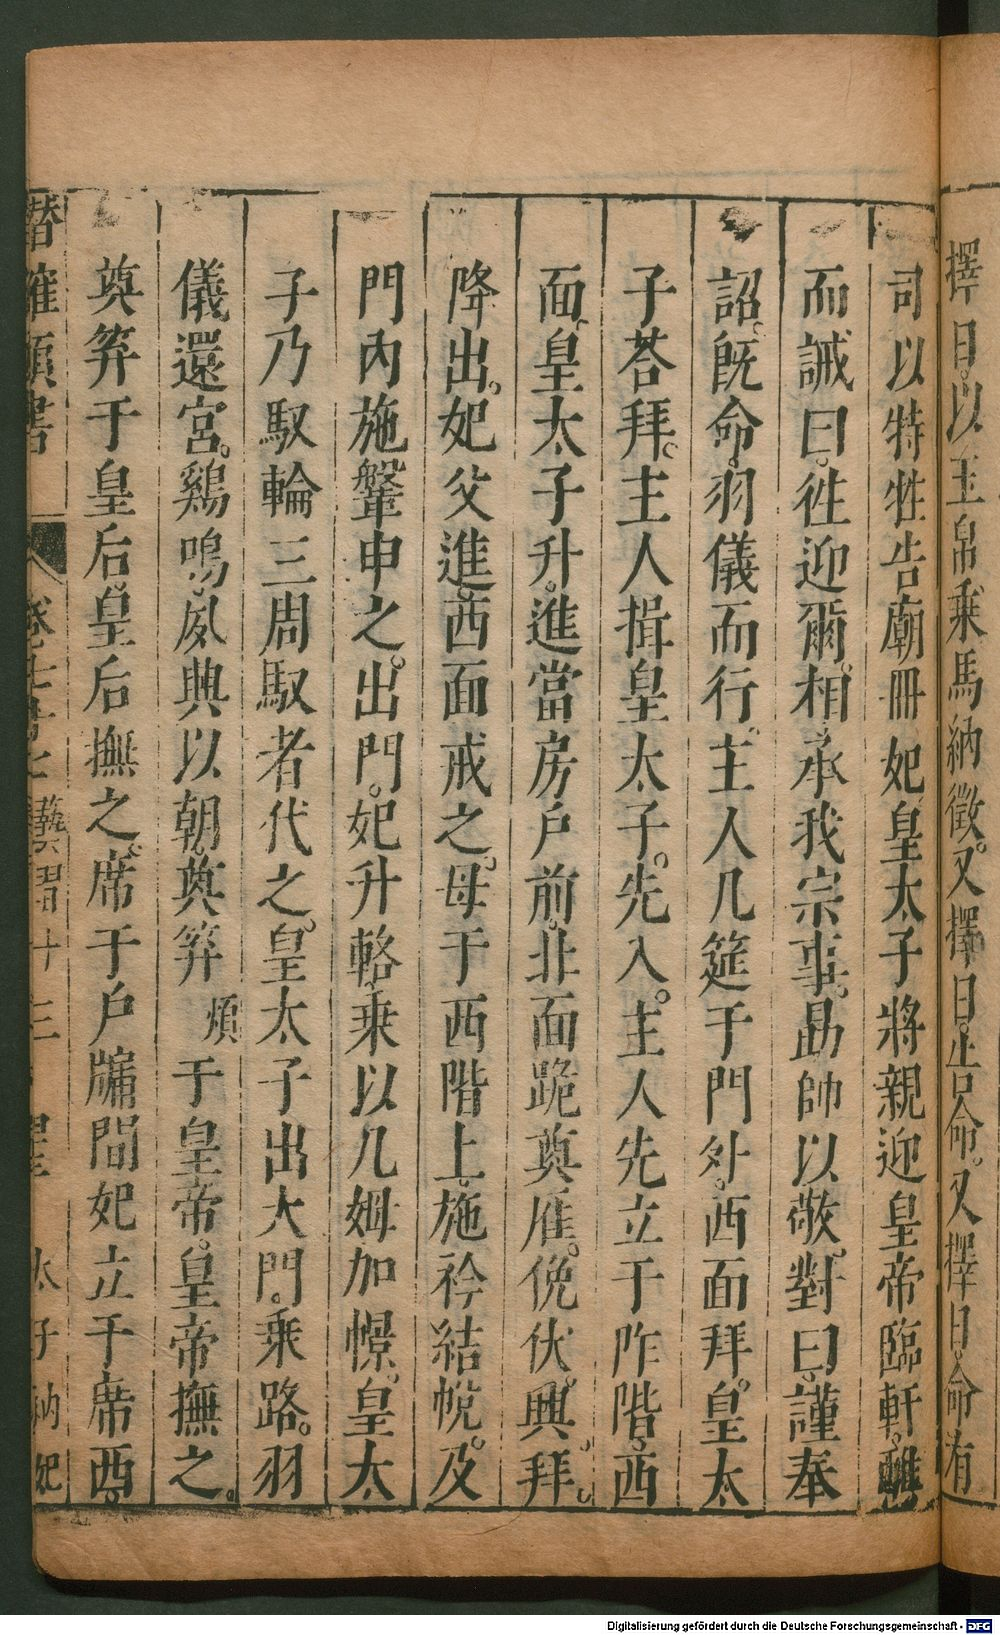 擇日。以玉帛乘馬納徵。又擇日。告命。又擇日。命有
司以特牲告廟冊妃皇太子將親迎皇帝臨軒。醮
而誡曰。往迎爾。相。承我宗事。勗帥以敬。對曰。謹奉
詔。既命。羽儀而行。主人几筵于門外。西面拜。皇太
子荅拜。主人揖皇太子。先入。主人先立于阼階。西
面。皇太子升。進當房戶前。北面跪奠雁。俛伏。興。拜。
降出。妃父進。西面戒之。母于西階上。施衿結帨。及
門內施鞶申之。出門。妃升輅。乘以几姆加憬。皇太
子乃馭輪三周馭者代之。皇太子出大門。乘路。羽
儀還宮。鷄鳴。夙興以朝。奠笲煩于皇帝。皇帝撫之。
奠笲于皇后。皇后撫之。席于戶牖間妃立于席西。
潛確類書 卷七 藝習十三 太子納妃
Digitalisierung gefördert durch die Deutsche Forschungsgemeinschaft - DFG